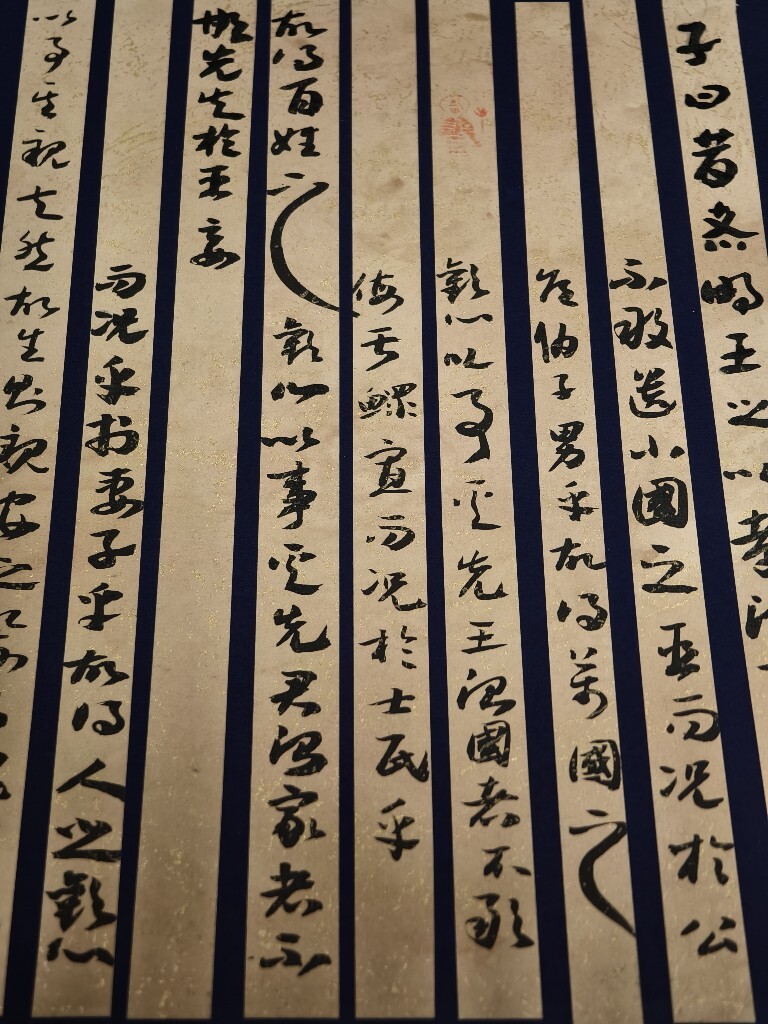 子曰昔者明王之以孝治
不敢遺小國之臣而況於公
侯伯子男乎故得萬國之
歡心以事其先王治國者不敢
侮於鰥寡而況於士民乎
故得百姓之歡心以事其先君治家者不
敢先失於臣妾
而況乎於妻子乎故得人之歡心
以事其親夫然故生則親安之祭則